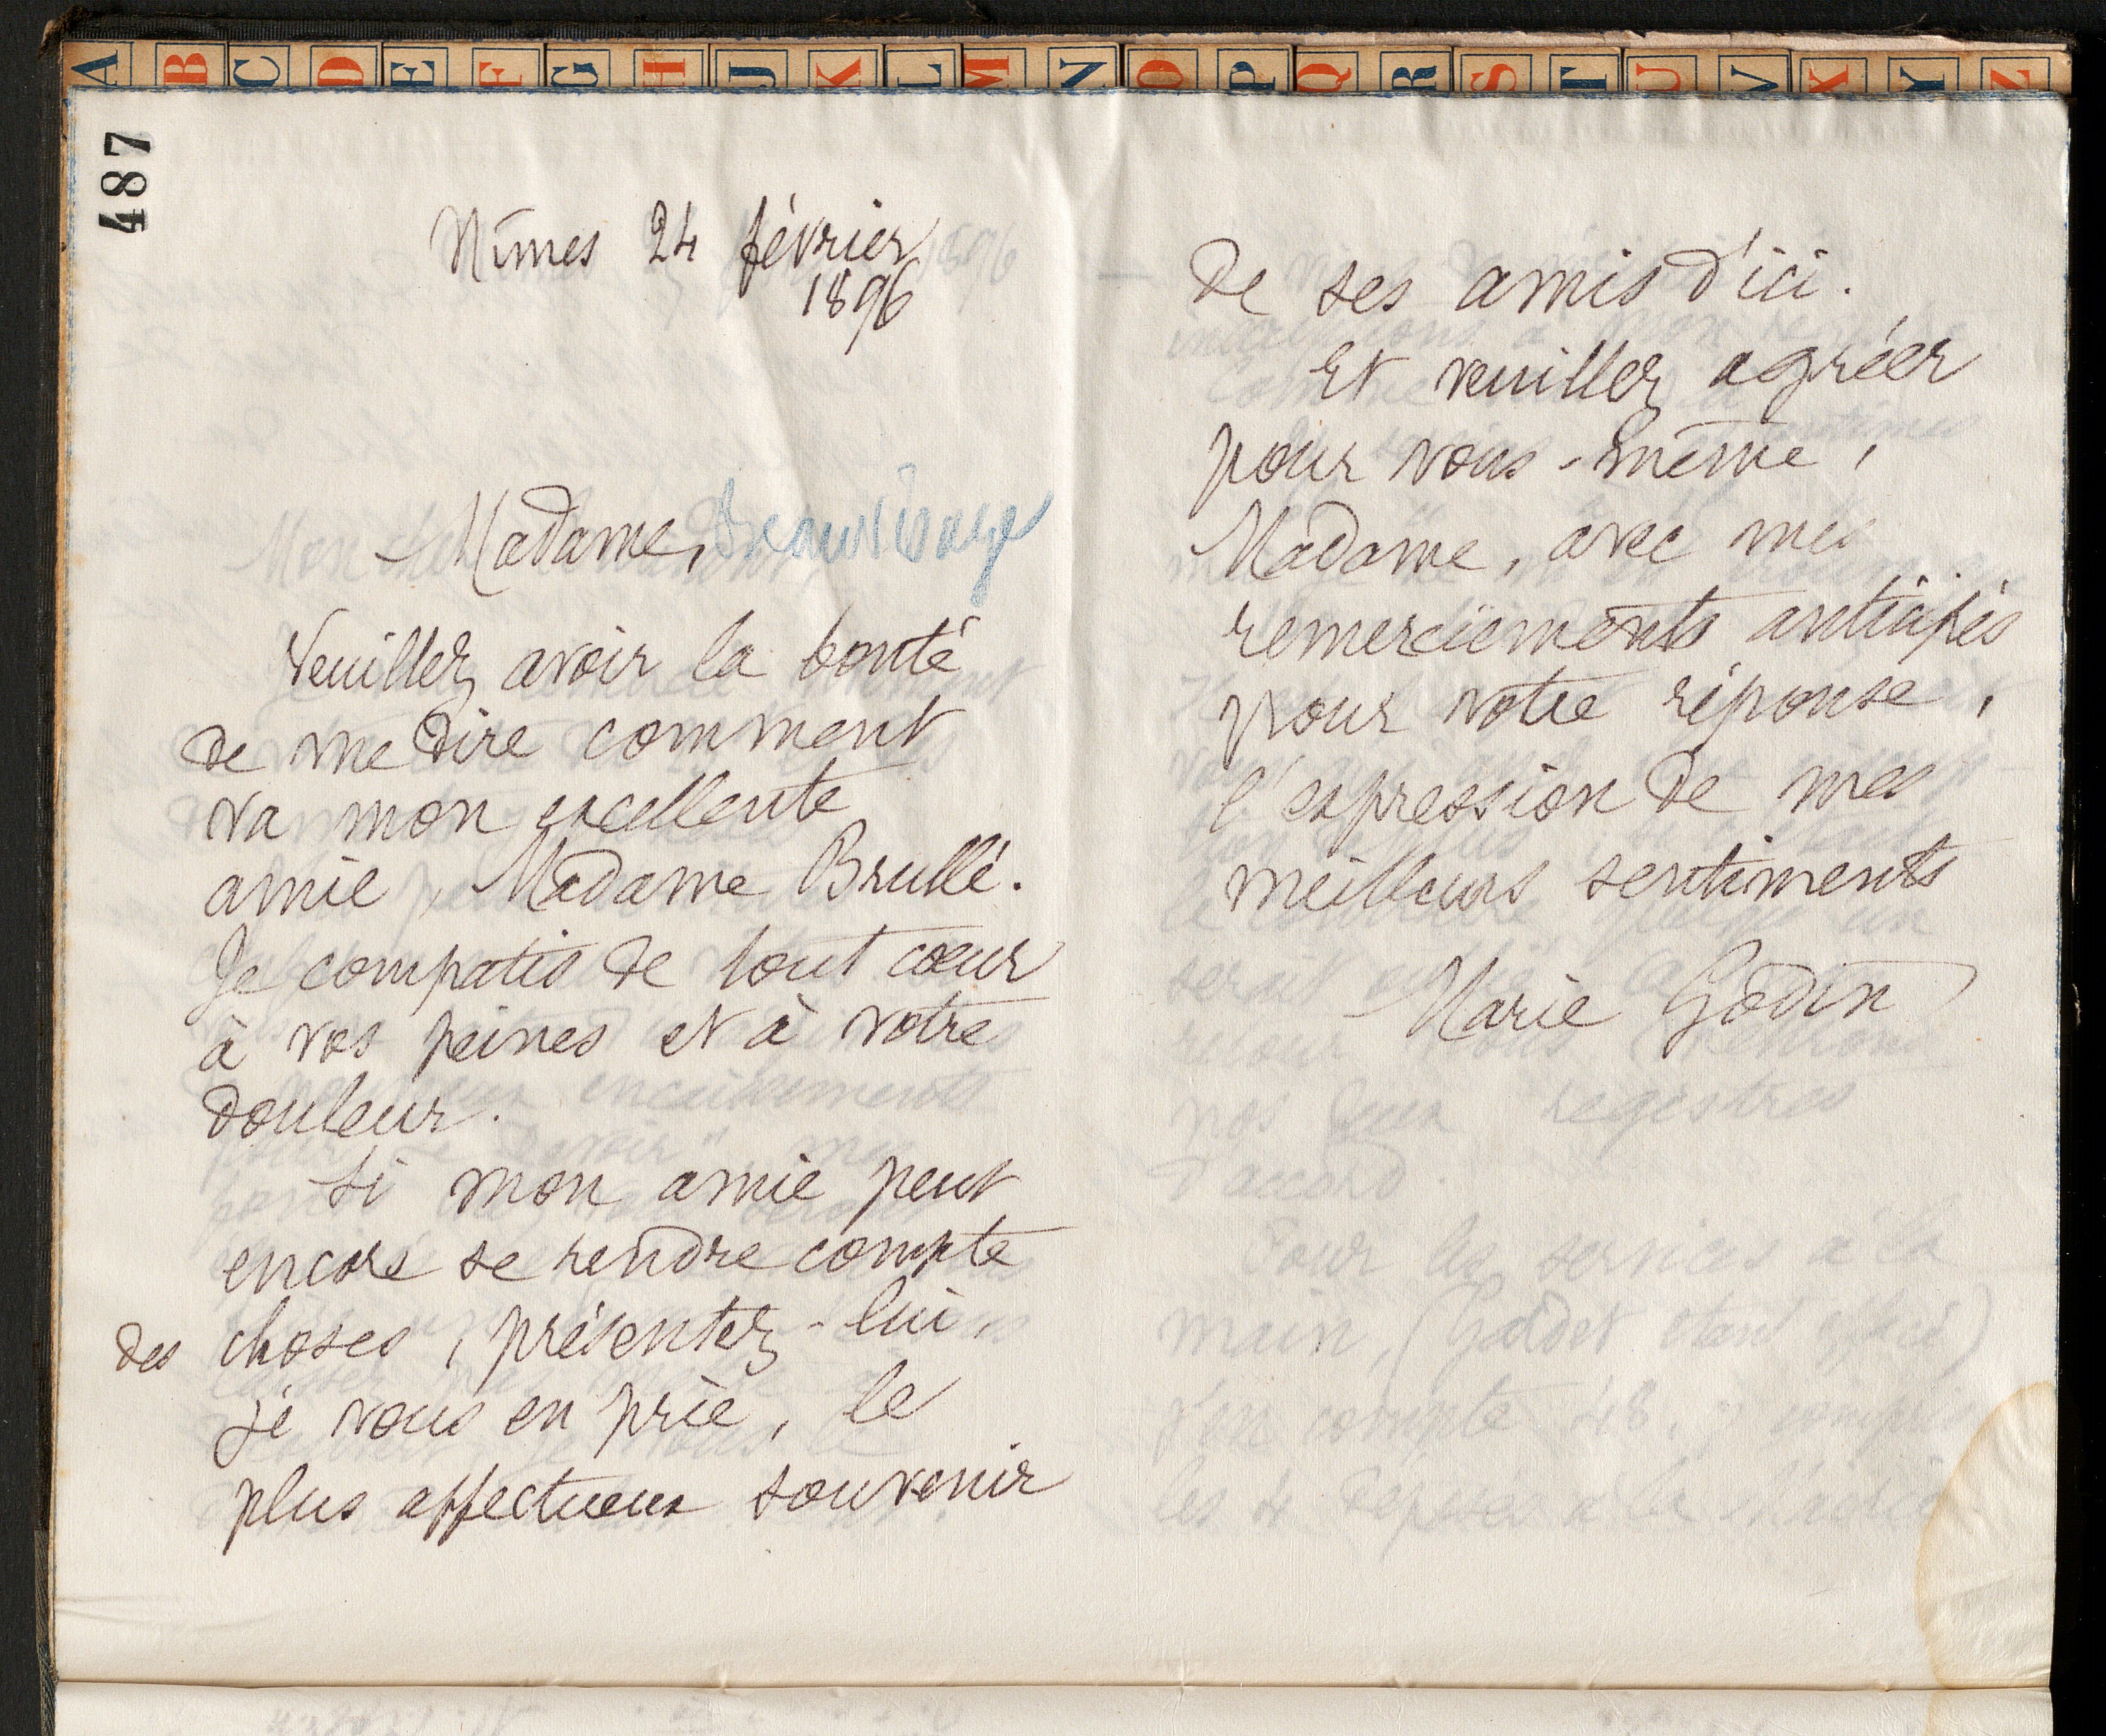 A B C D E F G H J K L M N O P Q R S T U V X Y Z
487
Nîmes 24 février
1896
Madame,
Veuillez avoir la bonté
de me dire comment
va mon excellente
amie, Madame Brullé.
Je compatis de tout cœur
à vos peines et à votre
douleur.
Si mon amie peut
encore se rendre compte
des choses, présentez-lui,
je vous en prie, le
plus affectueux souvenir
de ses amis d'ici.
Et veuillez agréer
pour vous-même,
Madame, avec mes
remerciements anticipés
pour votre réponse,
l'expression de mes
meilleurs sentiments
Marie Godin